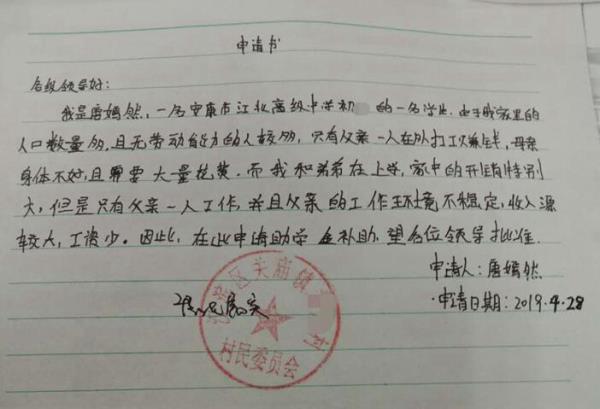 申请书
各级领导好:
我是唐嫣然,一名安康市江北高级中学初 的一名学生.由于我家里的
人口数量多,且无劳动能力的人较多,只有父亲一人在外打工赚钱,母亲
身体不好,且需要大量花费.而我和弟弟在上学,家中的开销特别
大,但是只有父亲一人工作,并且父亲的工作环境不稳定,收入源
较大,工资少。因此,在此申请助学金补助,望各位领导批准.
申请人:唐嫣然
情况属实
·申请日期:2019.4.28
区关庙镇 村
村民委员会